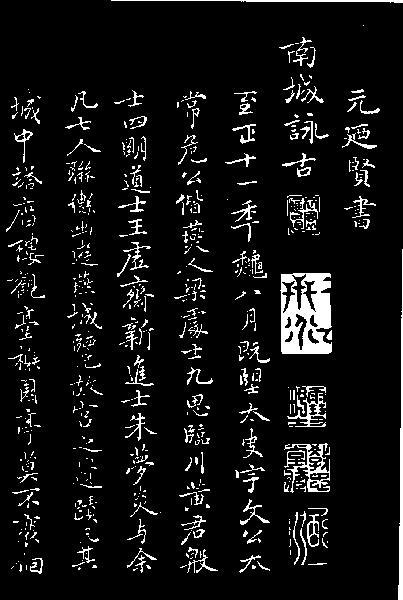 元廼賢書
南城詠古
至正十一秊龝八月既朢太史宇文公太
常危公偕燕人梁處士九思臨川黃君殷
士四明道士王虛齋新進士朱夢炎与余
凡七人聯轡出遊燕城覽故宮之遺蹟凡其
城中塔廟樓觀臺榭園亭莫不裵徊